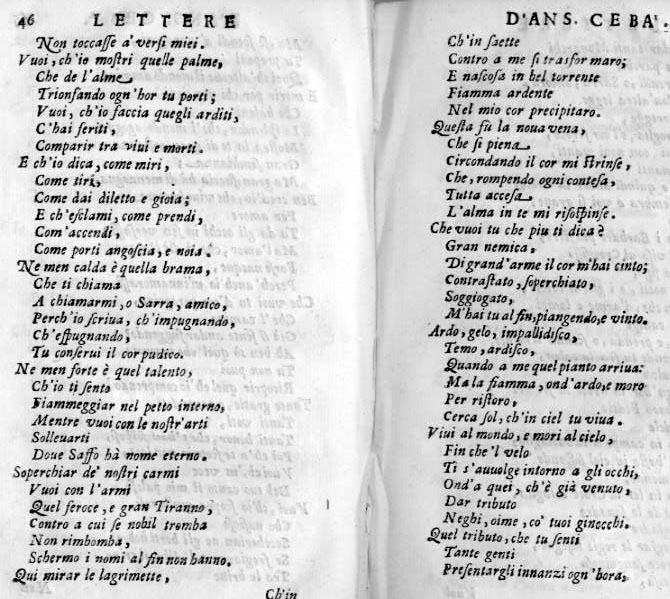 46 LETTERE
Non toccasse a' versi miei.
Vuoi, ch'io mostri quelle palme,
Che de l'alme
Trionfando ogn'hor tu porti;
Vuoi, ch'io faccia quegli arditi,
C'hai feriti,
Comparir tra viui e morti.
E ch'io dica, come miri,
Come tiri,
Come dai diletto e gioia;
E ch'esclami, come prendi,
Com'accendi,
Come porti angoscia, e noia.
Ne men calda è quella brama,
Che ti chiama
A chiamarmi, o Sarra, amico,
Perch'io scriua, ch'impugnando,
Ch'espugnando,
Tu conserui il cor pudico.
Ne men forte è quel talento,
Ch'io ti sento
Fiammeggiar nel petto interno,
Mentre vuoi con le nostr'arti
Solleuarti
Doue Saffo hà nome eterno.
Soperchiar de' nostri carmi
Vuoi con l'armi
Quel feroce, e gran Tiranno,
Contro a cui se nobil tromba
Non rimbomba,
Schermo i nomi al fin non hanno.
Qui mirar le lagrimette,
Ch'in
D'ANS. CEBA'.
Ch'in saette
Contro a me si trasformaro;
E nascosa in bel torrente
Fiamma ardente
Nel mio cor precipitaro.
Questa fù la noua vena,
Che si piena
Circondando il cor mi strinse,
Che, rompendo ogni contesa,
Tutta accesa
L'alma in te mi risospinse.
Che vuoi tu che piu ti dica?
Gran nemica,
Di grand'arme il cor m'hai cinto;
Contrastato, soperchiato,
Soggiogato,
M'hai tu al fin, piangendo, e vinto.
Ardo, gelo, impallidisco,
Temo, ardisco,
Quando a me quel pianto arriua:
Ma la fiamma, ond'ardo, e moro
Per ristoro,
Cerca sol, ch'in ciel tu viua.
Viui al mondo, e mori al cielo,
Fin che 'l velo
Ti s'auuolge intorno a gli occhi,
Ond'a quei, ch'è già venuto,
Dar tributo
Neghi, oime, co' tuoi ginocchi.
Quel tributo, che tu senti
Tante genti
Presentargli innanzi ogn'hora,